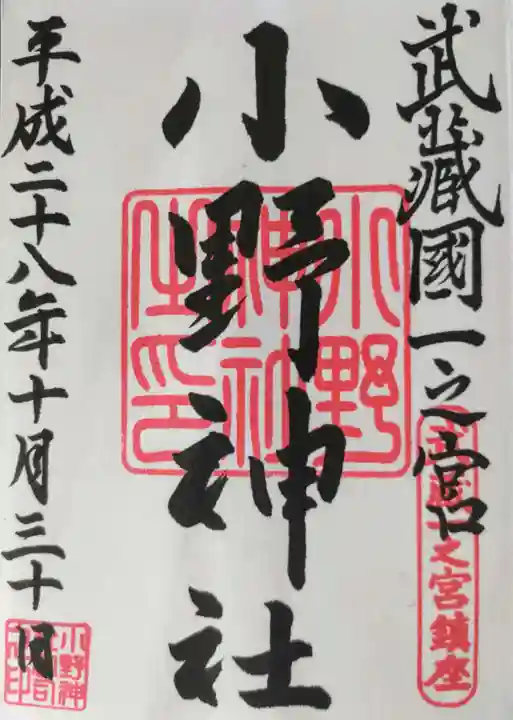 武蔵國一之宮
武蔵一之宮鎮座
小野神社
小野
神社
印
平成二十八年十月三十日
小野神